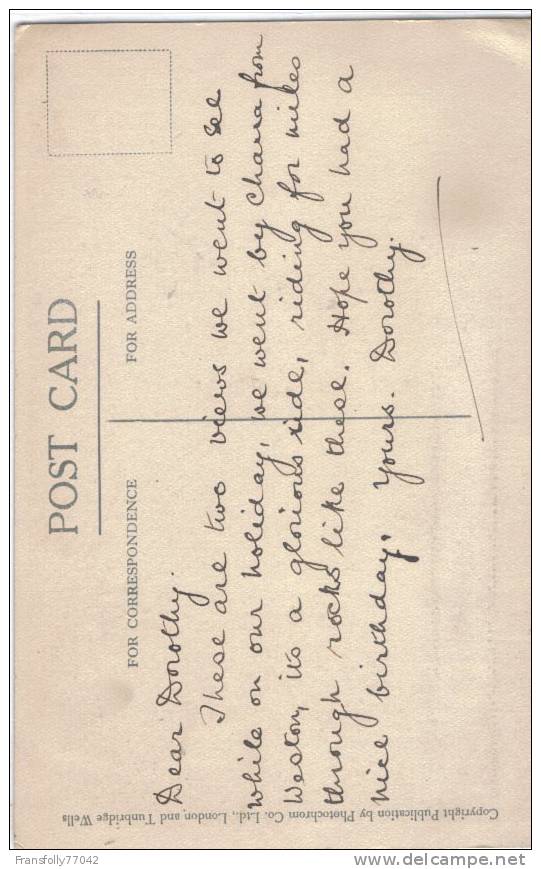 POST CARD
FOR CORRESPONDENCE
FOR ADDRESS
Dear Dorothy.
These are two views we went to see
while on our holiday, we went by Chara from
Weston, its a glorious ride, riding for miles
through rocks like these. Hope you had a
nice birthday, Yours. Dorothy.
Copyright Publication by Photochrom Co. Ltd., London and Tunbridge Wells
Fransfolly77042
www.delcampe.net